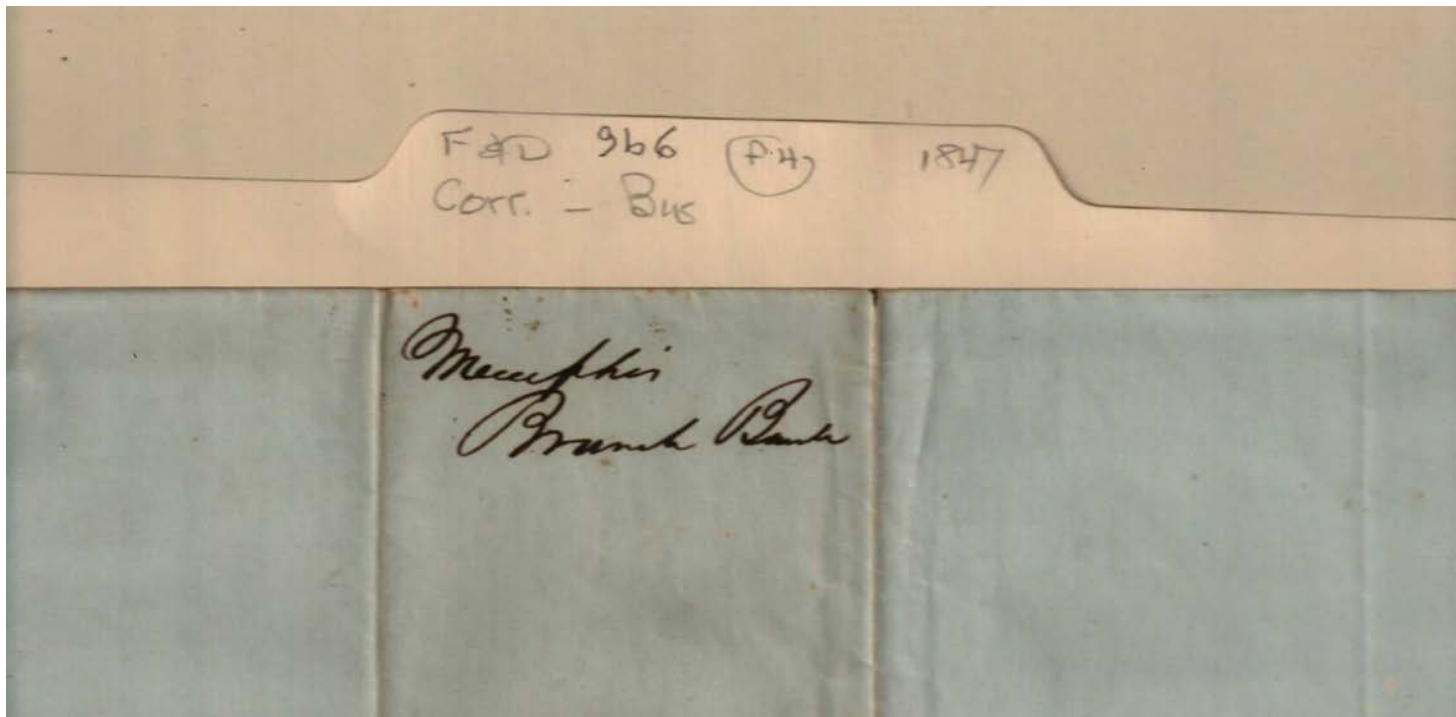 F&D 966 f.4 1847
Corr. - Bus
Memphis
Branch Bank